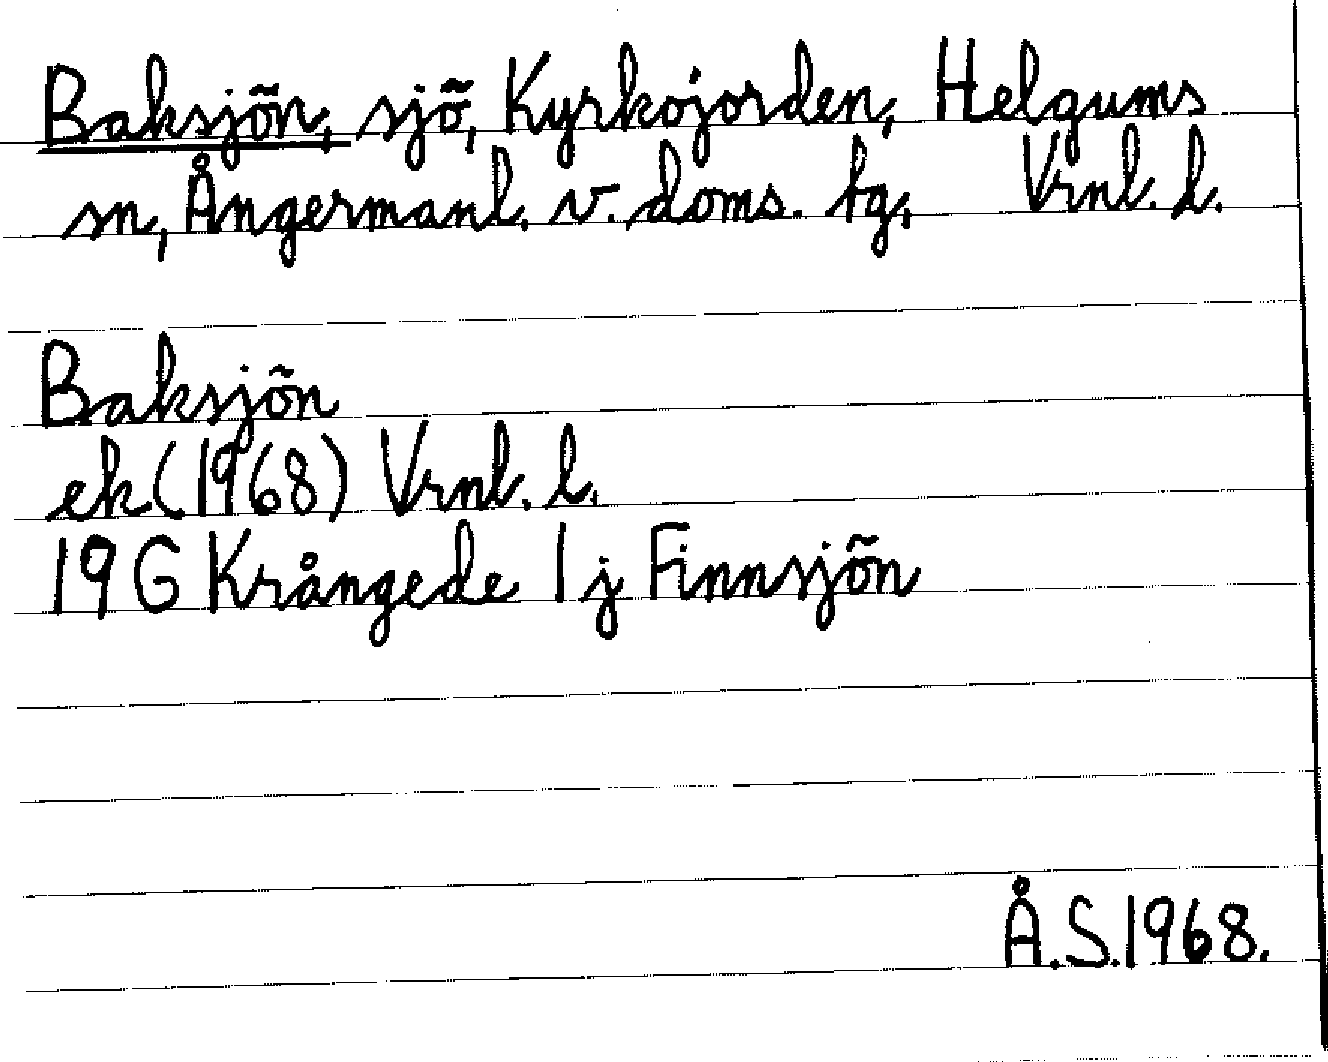 Baksjön, sjö, Kyrkojorden, Helgums
sn, Ångermanl. v. doms. tg, Vrnl. l.
Baksjön
ek (1968) Vrnl. l.
19 G Krångede 1 j Finnsjön
Å.S.1968.